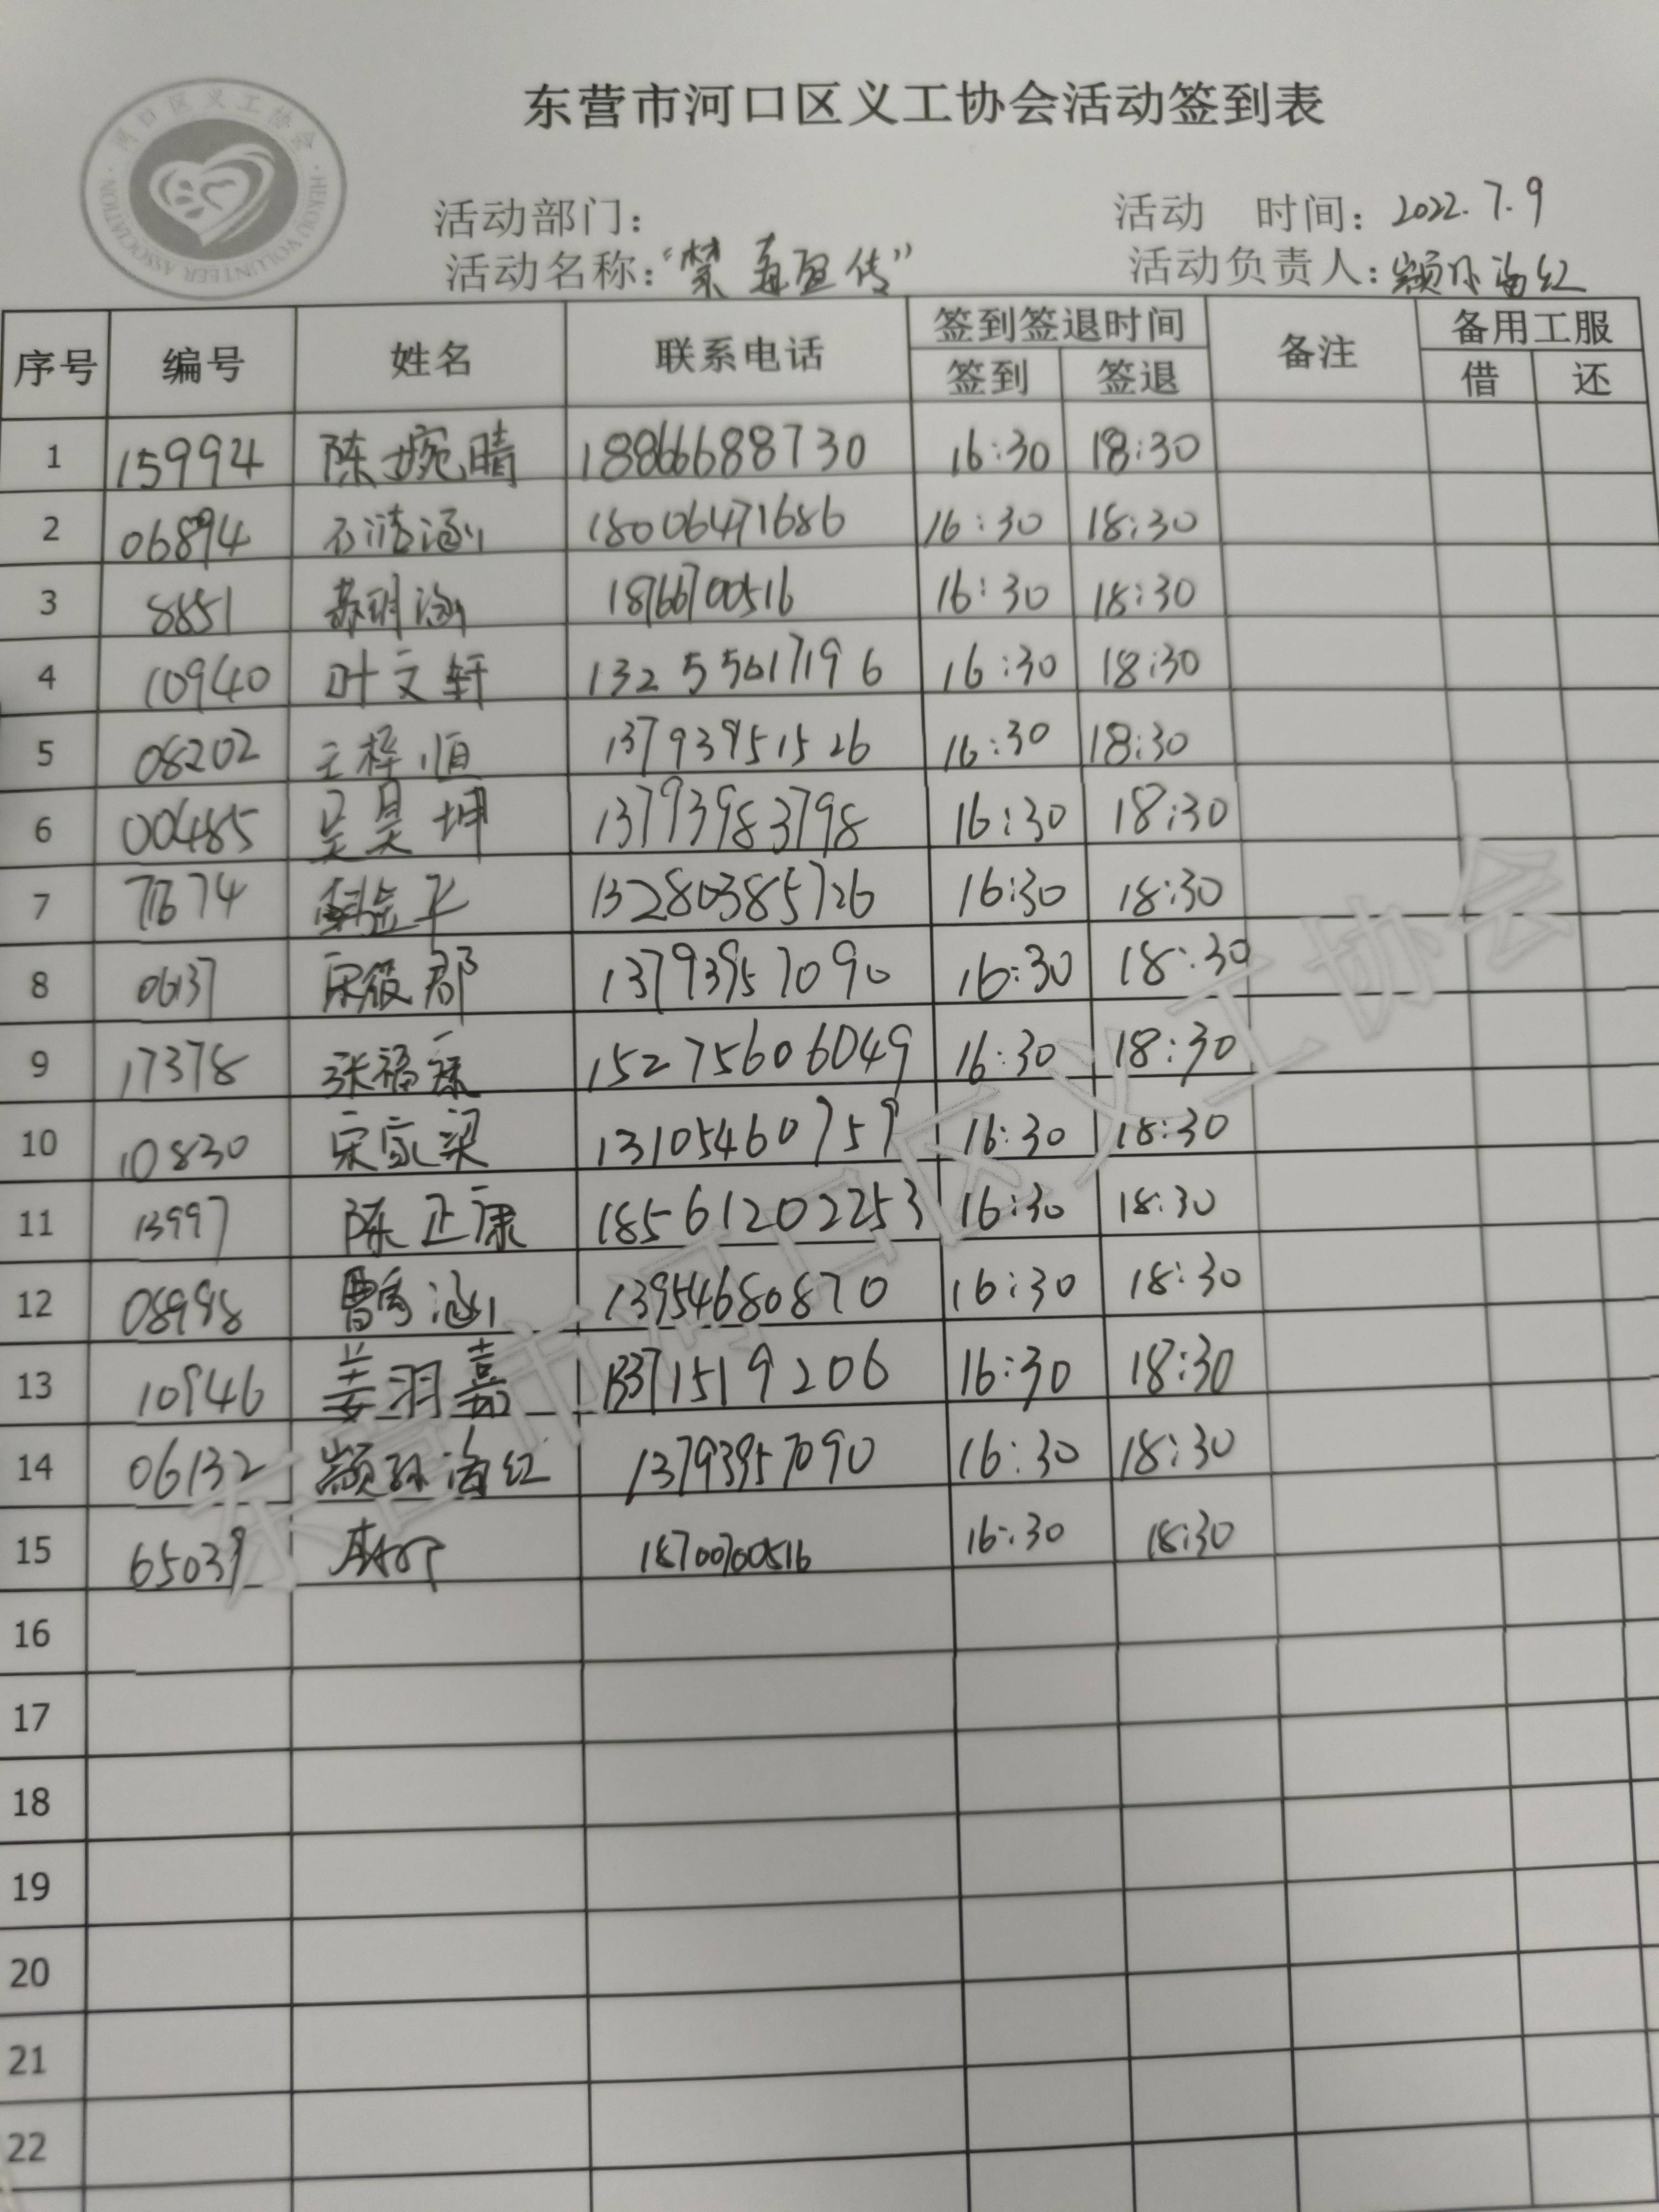 河口区义工协会
HEKOU VOLUNTEER ASSOCIATION
东营市河口区义工协会活动签到表
活动部门： 活动 时间：2022.7.9
活动名称：“禁毒宣传” 活动负责人：颛孙海红
序号 编号 姓名 联系电话 签到签退时间 备注 备用工服
签到 签退 借 还
1 15994 陈婉晴 18866688730 16:30 18:30
2 06894 石清涵 18006471686 16:30 18:30
3 8851 苏玥涵 18766700516 16:30 18:30
4 10940 叶文轩 13255617196 16:30 18:30
5 08202 王梓恒 13793951526 16:30 18:30
6 00485 吴昊坤 13793983798 16:30 18:30
7 74 平 13280385726 16:30 18:30
8 06137 宋筱郡 13793957090 16:30 18:30
9 17378 张福森 15275606049 16:30 18:30
10 10830 宋家梁 13105460759 16:30 18:30
11 13997 陈正康 18561202253 16:30 18:30
12 08998 曹涵 13954680870 16:30 18:30
13 10946 姜羽嘉 13371519206 16:30 18:30
14 06132 颛孙海红 13793957090 16:30 18:30
15 65039 18700700516 16:30 18:30
16
17
18
19
20
21
22
东营市河口区义工协会